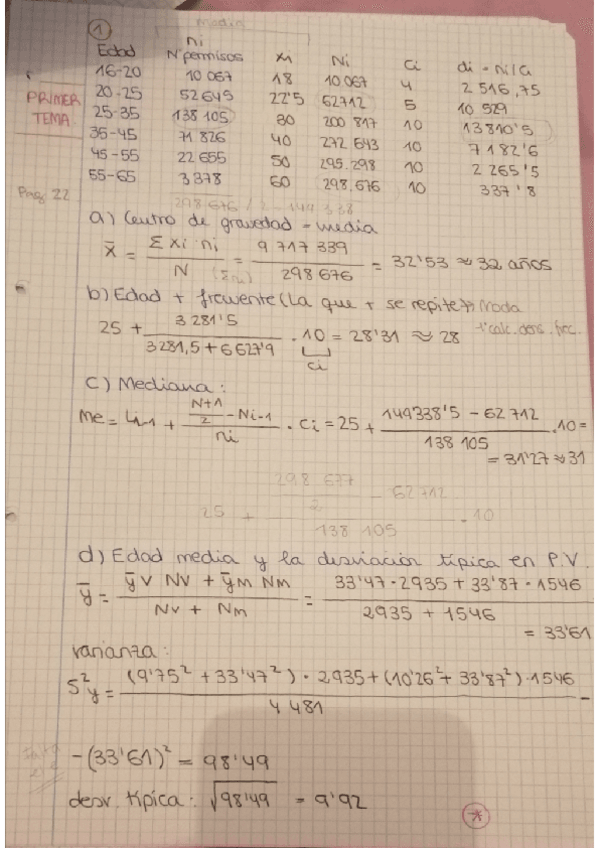 1
Media
Edad ni Nº permisos xi Ni Ci di = ni/ci
16-20 10 067 18 10 067 4 2 516,75
20-25 52 645 22'5 62712 5 10 529
25-35 138 105 30 200 817 10 13810'5
35-45 71 826 40 272 643 10 7182'6
45-55 22 655 50 295.298 10 2 265'5
55-65 3 378 60 298,676 10 337'8
PRIMER
TEMA
Pag 22
298 676 / 2 = 149 338
a) Centro de gravedad = media
x̄ = Σ xi · ni / N (Σni) = 9 717 339 / 298 676 = 32'53 ≈ 32 años
b) Edad + frecuente (La que + se repite) Moda
25 + 3 281'5 / 3281,5 + 6627'9 · 10 = 28'31 ≈ 28
ci
c) Mediana:
Me = Li-1 + N+1/2 - Ni-1 / ni · Ci = 25 + 149338'5 - 62 712 / 138 105 · 10 =
= 31'27 ≈ 31
25 + 298 677 / 2 - 62712 / 138 105 · 10
d) Edad media y la desviación típica en P.V.
ȳ = ȳv Nv + ȳm Nm / Nv + Nm = 33'47 · 2935 + 33'87 · 1546 / 2935 + 1546
= 33'61
varianza:
S²y = (9'75² + 33'47²) · 2935 + (10'26² + 33'87²) · 1546 / 4 481 -
-(33'61)² = 98'49
desv. típica: √98'49 = 9'92
*